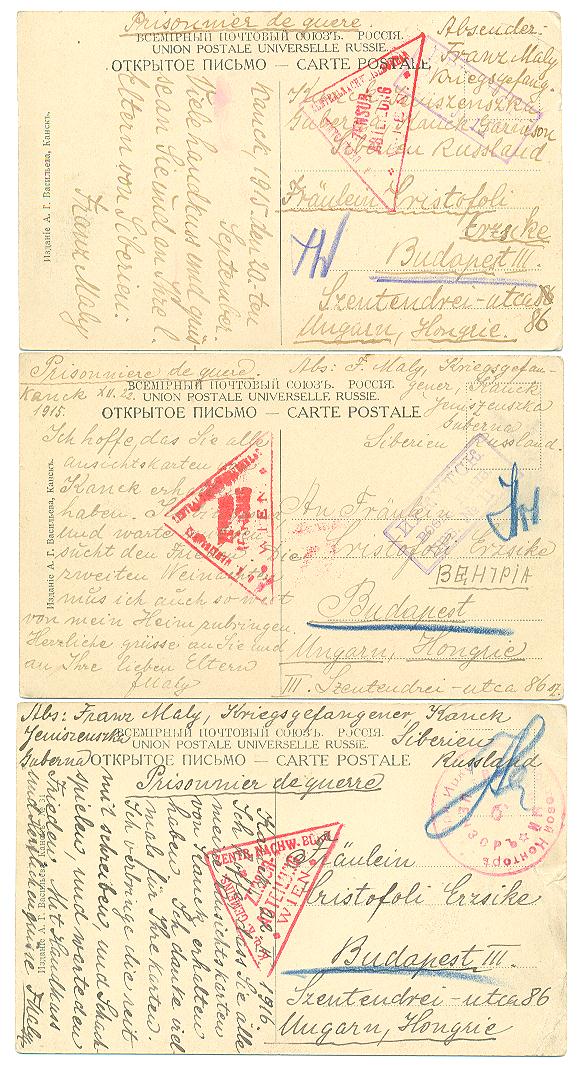 Prisonnier de guere.
ВСЕМІРНЫЙ ПОЧТОВЫЙ СОЮЗЪ. РОССІЯ.
UNION POSTALE UNIVERSELLE RUSSIE.
ОТКРЫТОЕ ПИСЬМО — CARTE POSTALE
Absender:
Franz Maly
Kriegsgefang.
Kanck Jeniszenszka
Gubernia Kanck Garnison
Siberien Russland
Fräulein Cristofoli
Erzsike
Budapest III.
Szentendrei-utca 86
86
Ungarn, Hongrie.
Kanck, 1915. den 20.-ten
September.
Viele handkus und grüs
sean Sie und an Ihre l.
Eltern von Siberien.
Franz Maly
Изданіе А. Г. Васильева, Канскъ.
ZENSUR-
ABTEILUNG
WIEN
Prisonniere de quere.
Kanck XII. 22.
1915.
ВСЕМІРНЫЙ ПОЧТОВЫЙ СОЮЗЪ. РОССІЯ.
UNION POSTALE UNIVERSELLE RUSSIE.
ОТКРЫТОЕ ПИСЬМО — CARTE POSTALE
Abs: F. Maly, Kriegsgefan-
gener, Kanck
Jeniszenszka
Guberna
Siberien Russland.
Ich hoffe, das Sie alle
ansichtskarten
Kanck
haben.
und warte
sucht den Frieden. Die
zweiten Weinachten
mus ich auch so weit
von mein Heim zubringen.
Herzliche grüsse an Sie und
an Ihre lieben Eltern
FMaly
Изданіе А. Г. Васильева, Канскъ.
WIEN
An Fräulein
Cristofoli Erzsike
ВЕНГРІА
Budapest
Ungarn, Hongrie
III. Szentendrei-utca 86 sz.
Abs: Franz Maly, Kriegsgefangener Kanck
Jeniszenszka
Guberna
Siberien
Russland
ВСЕМІРНЫЙ ПОЧТОВЫЙ СОЮЗЪ. РОССІЯ.
UNION POSTALE UNIVERSELLE RUSSIE.
ОТКРЫТОЕ ПИСЬМО — CARTE POSTALE
Prisonnier de guerre
Fräulein
Cristofoli Erzsike
Budapest III.
Szentendrei-utca 86
Ungarn, Hongrie
1916
Ich hoffe, dass Sie alle
meine Ansichtskarten
von Kanck erhalten
haben. Ich danke viel
mals für Ihre Karten.
Ich verbringe die zeit
mit schreiben, und Schach
spielen, und warte den
Frieden. Mit Handkus
und herzlichen Grüsse FMaly
Изданіе А. Г. Васильева
ZENTR. NACHW. BÜRO
ZENSUR-
ABTEILUNG
WIEN